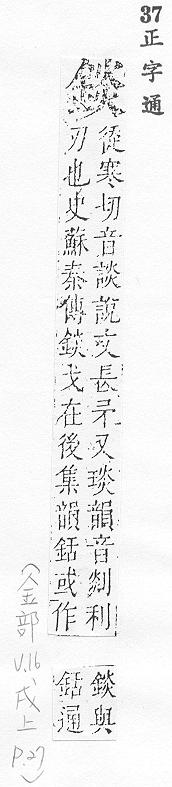 37正字通
錟
從寒切音談說文長矛又琰韻音剡利
刃也史蘇秦傳錟戈在後集韻銛或作
錟與
銛通
(金部 V.16、戌上 P.27)